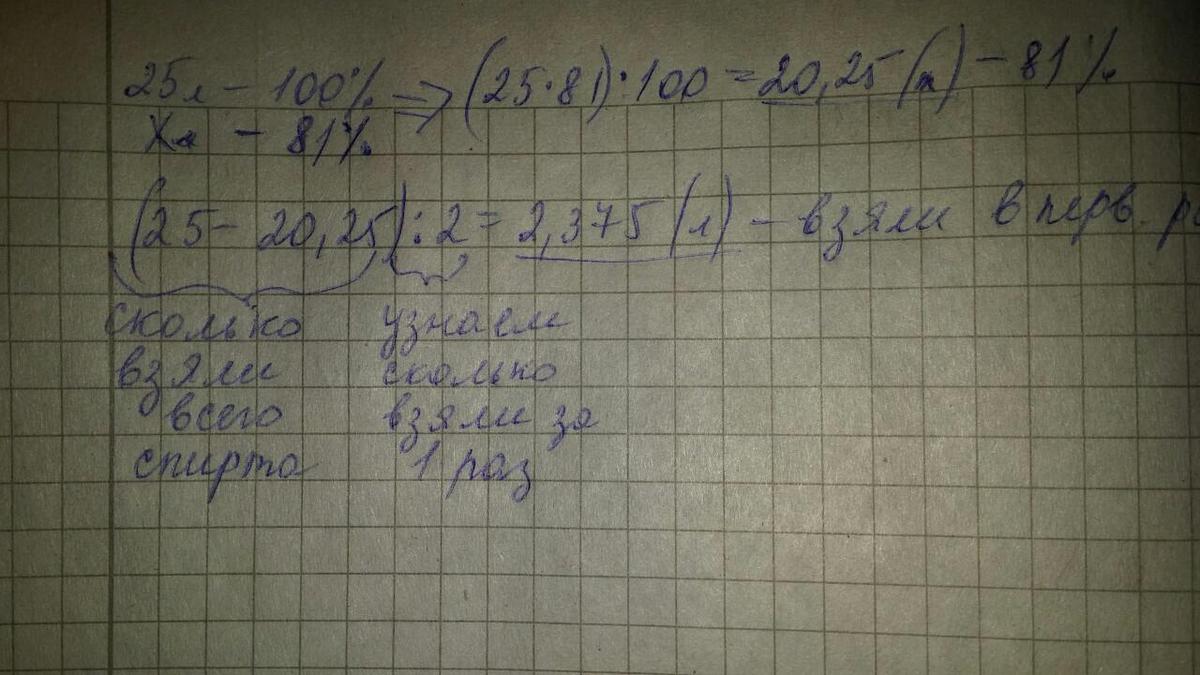 25л - 100% ⇒ (25·81):100 = 20,25 (л) - 81%
Xл - 81%
(25 - 20,25):2 = 2,375 (л) - взяли в перв.
сколько узнаем
взяли сколько
всего взяли за
спирта 1 раз